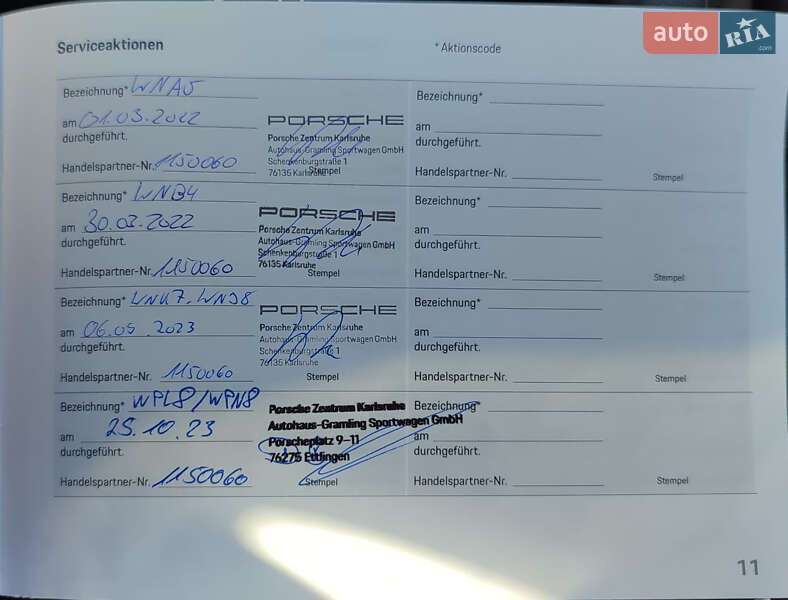 auto RIA .com
Serviceaktionen
* Aktionscode
Bezeichnung* WNA5
am 01.03.2022
durchgeführt.
Handelspartner-Nr. 1150060
PORSCHE
Porsche Zentrum Karlsruhe
Autohaus-Gramling Sportwagen GmbH
Schenkenburgstraße 1
76135 Karlsruhe
Stempel
Bezeichnung*
am
durchgeführt.
Handelspartner-Nr.
Stempel
Bezeichnung* WNB4
am 30.03.2022
durchgeführt.
Handelspartner-Nr. 1150060
PORSCHE
Porsche Zentrum Karlsruhe
Autohaus-Gramling Sportwagen GmbH
Schenkenburgstraße 1
76135 Karlsruhe
Stempel
Bezeichnung*
am
durchgeführt.
Handelspartner-Nr.
Stempel
Bezeichnung*
am 06.05.2023
durchgeführt.
Handelspartner-Nr. 1150060
PORSCHE
Porsche Zentrum Karlsruhe
Autohaus-Gramling Sportwagen GmbH
Schenkenburgstraße 1
76135 Karlsruhe
Stempel
Bezeichnung*
am
durchgeführt.
Handelspartner-Nr.
Stempel
Bezeichnung* WPL8/WPN8
am 25.10.23
durchgeführt.
Handelspartner-Nr. 1150060
Porsche Zentrum Karlsruhe
Autohaus-Gramling Sportwagen GmbH
Porscheplatz 9-11
76275 Ettlingen
Stempel
Bezeichnung*
am
durchgeführt.
Handelspartner-Nr.
Stempel
11